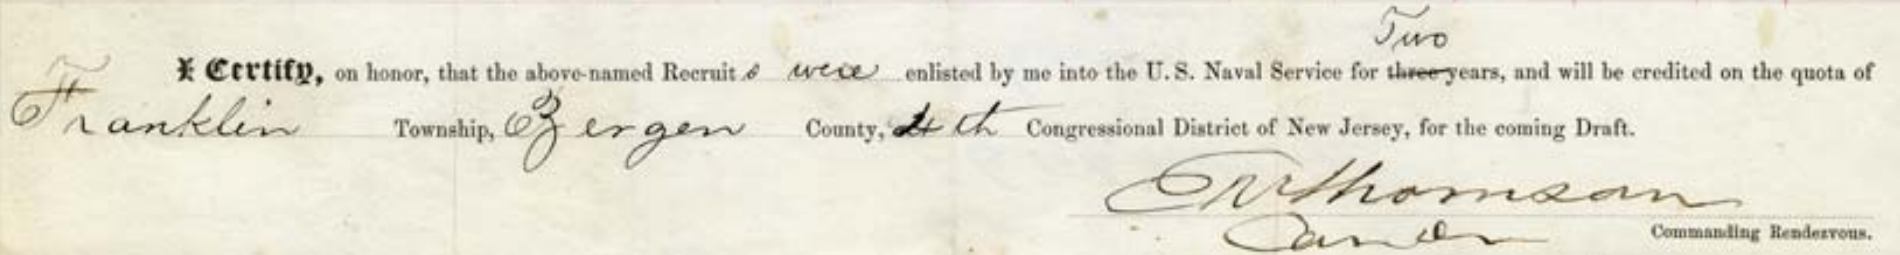 Two
I Certify, on honor, that the above-named Recruits were enlisted by me into the U.S. Naval Service for three years, and will be credited on the quota of
Franklin Township, Bergen County, 4th Congressional District of New Jersey, for the coming Draft.
Thomson
Commanding Rendezvous.